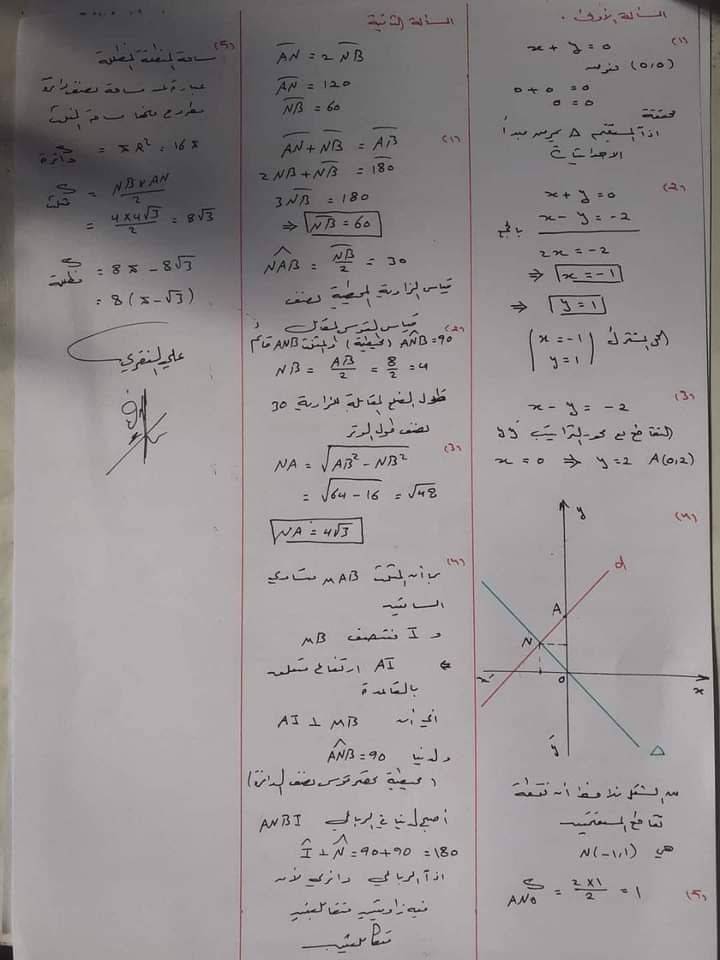 المسألة الأولى :
(1)
x + y = 0
(0,0) نعوض
0 + 0 = 0
0 = 0
محققة
اذاً المستقيم Δ يمر من مبدأ
الاحداثيات
(2)
x + y = 0
x - y = -2
بالجمع
2x = -2
⇒ x = -1
⇒ y = 1
الحل المشترك (x = -1
y = 1)
(3)
x - y = -2
التقاطع مع محور التراتيب yy'
x = 0 ⇒ y = 2 A(0,2)
(4)
y
d
A
N
x'
O
x
y'
Δ
من الشكل نلاحظ أن نقطة
تقاطع المستقيمين
هي N(-1,1)
(5) S ANO = 2×1/2 = 1
المسألة الثانية
AN = 2 NB
AN = 120
NB = 60
(1)
AN + NB = AB
2NB + NB = 180
3NB = 180
⇒ NB = 60
NAB = NB/2 = 30
قياس الزاوية المحيطية نصف
قياس القوس المقابل
(2) ANB = 90 (محيطية) المثلث ANB قائم
NB = AB/2 = 8/2 = 4
طول الضلع المقابلة للزاوية 30
نصف طول الوتر
(3)
NA = √(AB² - NB²)
= √(64 - 16) = √48
NA = 4√3
(4)
بما أن المثلث MAB متساوي
الساقين
و I منتصف MB
⇐ AI ارتفاع متعلق
بالقاعدة
أي أن AI ⊥ MB
ولدينا ANB = 90
(محيطية تحصر قوس نصف الدائرة)
أصبح لدينا في الرباعي ANBI
I + N = 90 + 90 = 180
اذاً الرباعي دائري لأن
فيه زاويتين متقابلتين
متكاملتين
(5)
مساحة المنطقة المظللة
عبارة عن مساحة نصف دائرة
مطروح منها مساحة المثلث
S دائرة = πR² = 16π
S مثلث = NB × AN / 2
= 4 × 4√3 / 2 = 8√3
S مظللة = 8π - 8√3
= 8(π - √3)